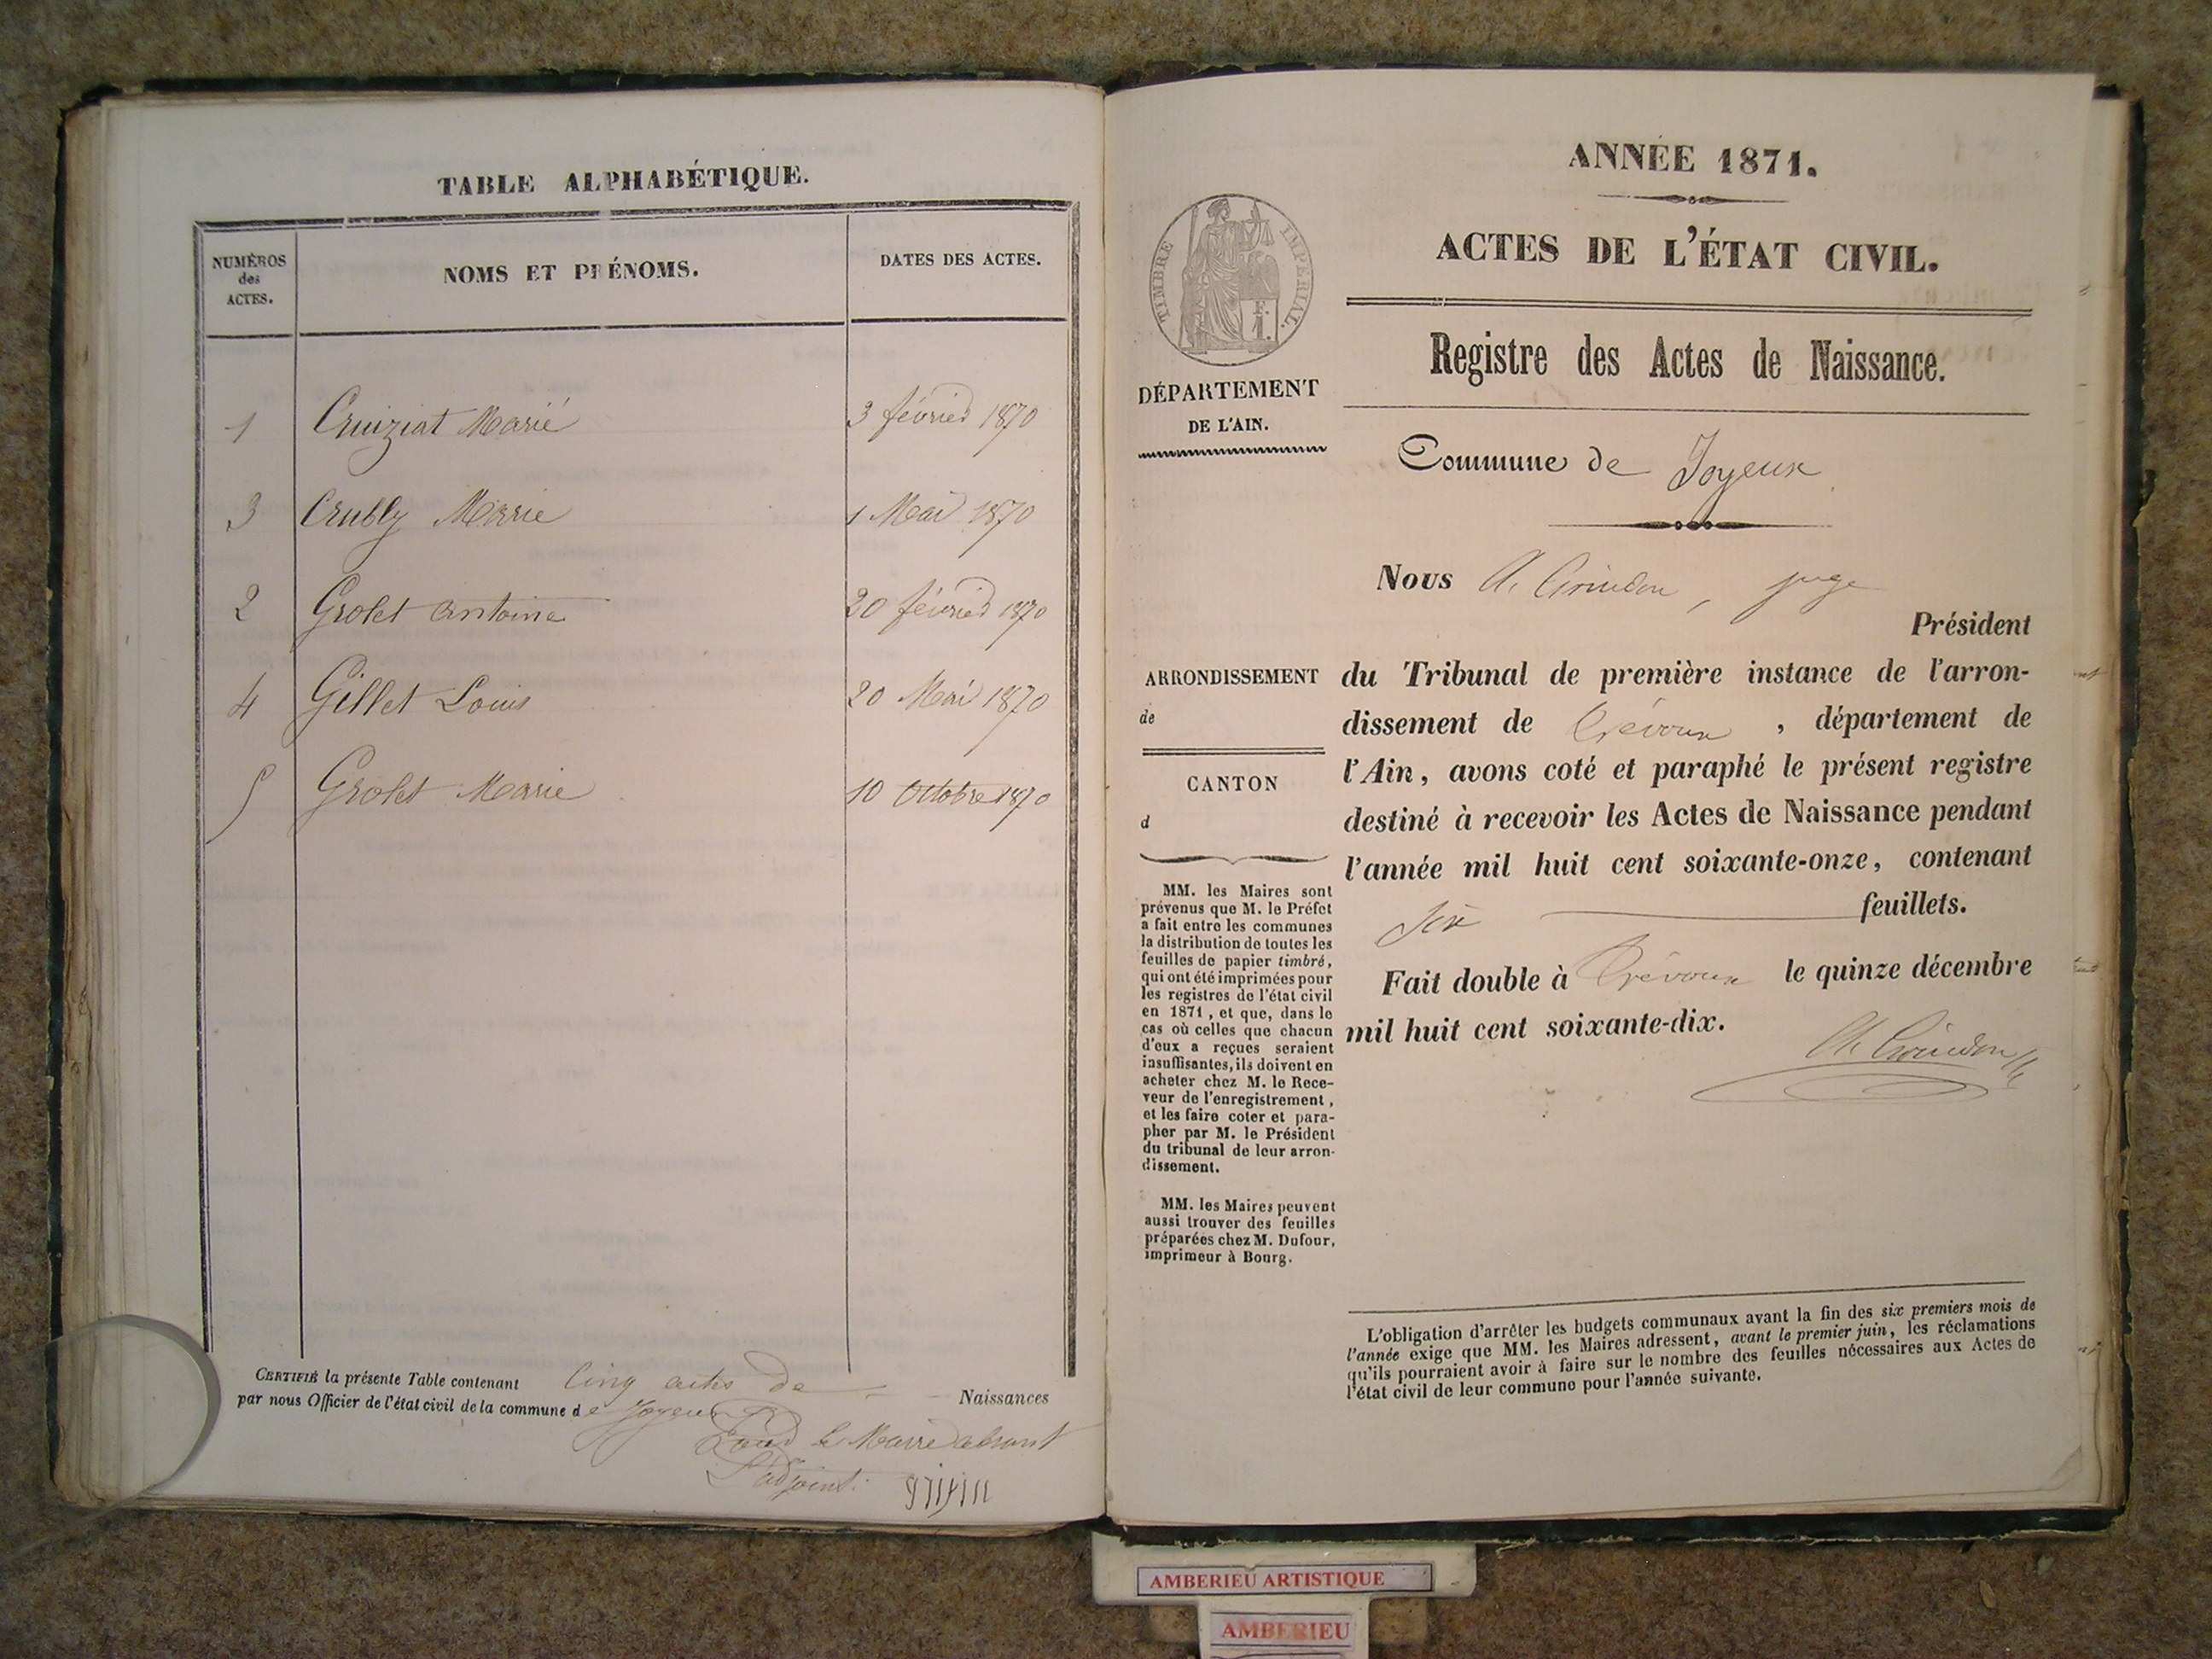 TABLE ALPHABÉTIQUE.
NUMÉROS
des
ACTES.
NOMS ET PRÉNOMS.
DATES DES ACTES.
1 Cruiziat Marie 3 février 1870
3 Crubly Marie 1 Mai 1870
2 Grolet antoine 20 février 1870
4 Gillet Louis 20 Mai 1870
5 Grolet Marie 10 Octobre 1870
CERTIFIÉ la présente Table contenant Cinq actes de Naissances
par nous Officier de l'état civil de la commune de Joyeux
Pour le Maire absent
L'adjoint:
ANNÉE 1871.
ACTES DE L'ÉTAT CIVIL.
TIMBRE IMPÉRIAL.
Registre des Actes de Naissance.
DÉPARTEMENT
DE L'AIN.
Commune de Joyeux
Nous A. Grindon, juge
Président
ARRONDISSEMENT
de
CANTON
d
du Tribunal de première instance de l'arron-
dissement de Trévoux, département de
l'Ain, avons coté et paraphé le présent registre
destiné à recevoir les Actes de Naissance pendant
l'année mil huit cent soixante-onze, contenant
Six feuillets.
Fait double à Trévoux le quinze décembre
mil huit cent soixante-dix.
A. Grindon
MM. les Maires sont
prévenus que M. le Préfet
a fait entre les communes
la distribution de toutes les
feuilles de papier timbré,
qui ont été imprimées pour
les registres de l'état civil
en 1871, et que, dans le
cas où celles que chacun
d'eux a reçues seraient
insuffisantes, ils doivent en
acheter chez M. le Rece-
veur de l'enregistrement,
et les faire coter et para-
pher par M. le Président
du tribunal de leur arron-
dissement.
MM. les Maires peuvent
aussi trouver des feuilles
préparées chez M. Dufour,
imprimeur à Bourg.
L'obligation d'arrêter les budgets communaux avant la fin des six premiers mois de
l'année exige que MM. les Maires adressent, avant le premier juin, les réclamations
qu'ils pourraient avoir à faire sur le nombre des feuilles nécessaires aux Actes de
l'état civil de leur commune pour l'année suivante.
AMBERIEU ARTISTIQUE
AMBERIEU